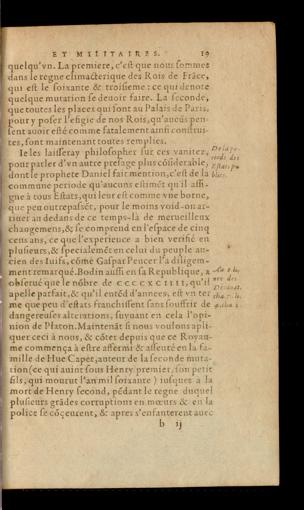 ET MILITAIRES. 19
quelqu'vn. La premiere, c'est que nous sommes
dans le regne climacterique des Rois de Frãce,
qui est le soixante & troisieme: ce qui denote
quelque mutation se deuoir faire. La seconde,
que toutes les places qui sont au Palais de Paris,
pour y poser l'efigie de nos Rois, qu'aucũs pen-
sent auoir esté comme fatalement ainsi construi-
tes, sont maintenant toutes remplies.
Ie les laisseray philosopher sur ces vanitez,
pour parler d'vn autre presage plus cõsiderable,
dont le prophete Daniel fait mention, c'est de la
commune periode qu'aucuns estimẽt qu'il assi-
gne à tous Estats, qui leur est comme vne borne,
que peu outrepassẽt, pour le moins void-on ar-
riuer au dedans de ce temps-là de merueilleux
changemens, & se comprend en l'espace de cinq
cens ans, ce que l'experience a bien verifié en
plusieurs, & specialemẽt en celui du peuple an-
cien des Iuifs, cõme Gaspar Peucer l'a diligem-
ment remarqué. Bodin aussi en sa Republique, a
obserué que le nõbre de CCCCXCIIII, qu'il
apelle parfait, & qu'il entẽd d'annees, est vn ter
me que peu d'estats franchissent sans souffrir de
dangereuses alterations, suyuant en cela l'opi-
nion de Platon. Maintenãt si nous voulons apli-
quer ceci à nous, & côtes depuis que ce Royau-
me commença à estre affermi & asseuré en la fa-
mille de Hue Capet, auteur de la seconde muta-
tion (ce qui auint sous Henry premier, son petit
fils, qui mourut l'an mil soixante) iusques à la
mort de Henry second, pẽdant le regne duquel
plusieurs grãdes corruptions en mœurs & en la
police se cõçeurent, & apres s'enfanterent auec
b ij
De la pe-
riode des
Estats pu-
blics.